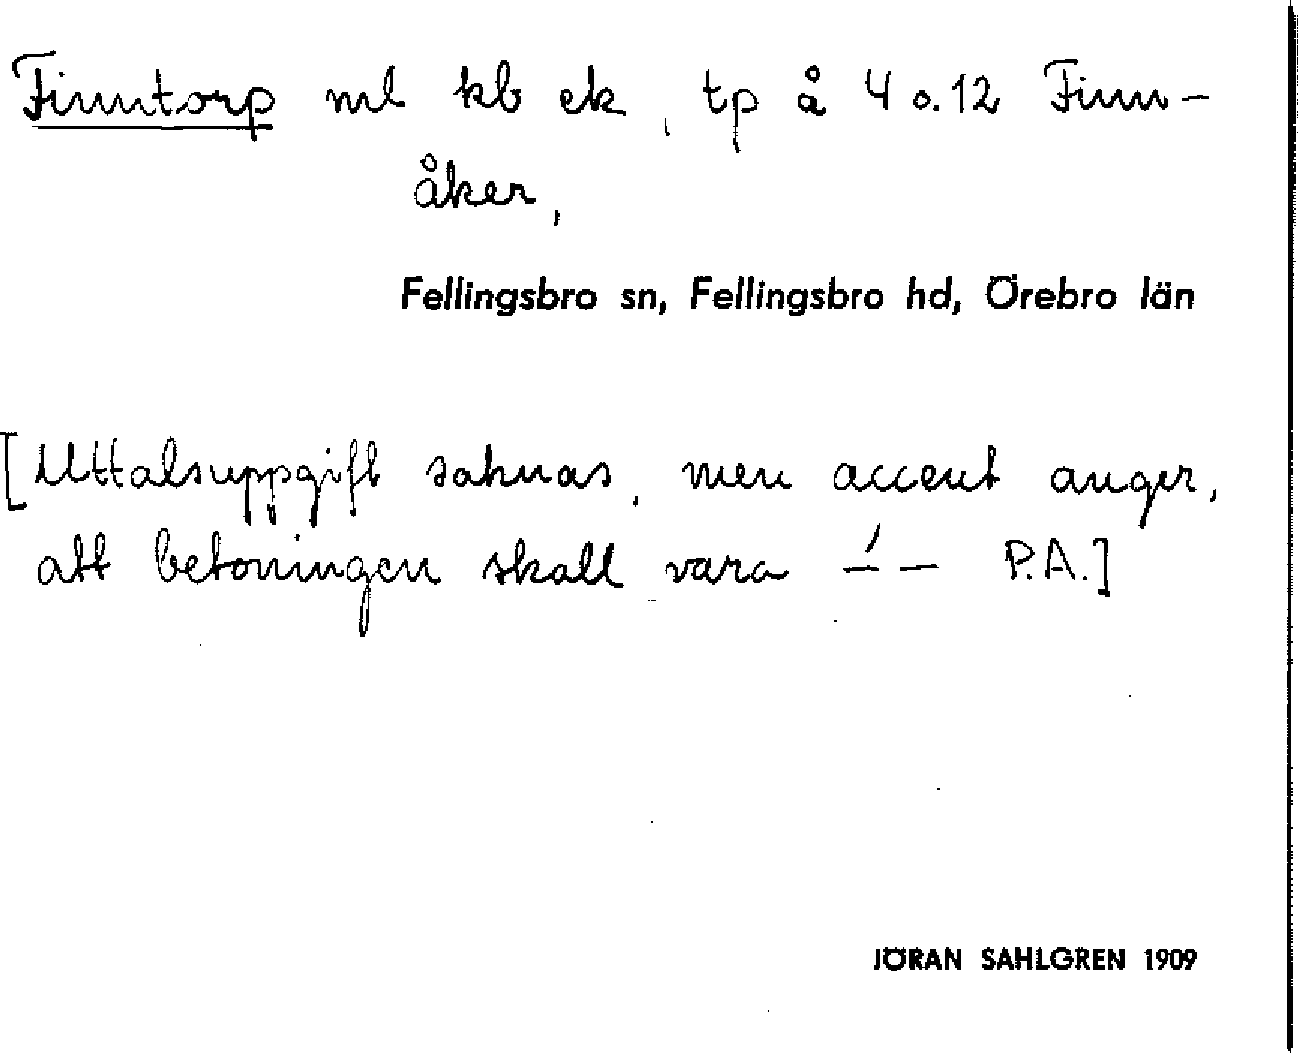 Finntorp ml kb ek, tp å 4 o. 12 Finn-
åker,
Fellingsbro sn, Fellingsbro hd, Örebro län
[Uttalsuppgift saknas, men accent anger,
att betoningen skall vara –́ – P.A.]
JÖRAN SAHLGREN 1909